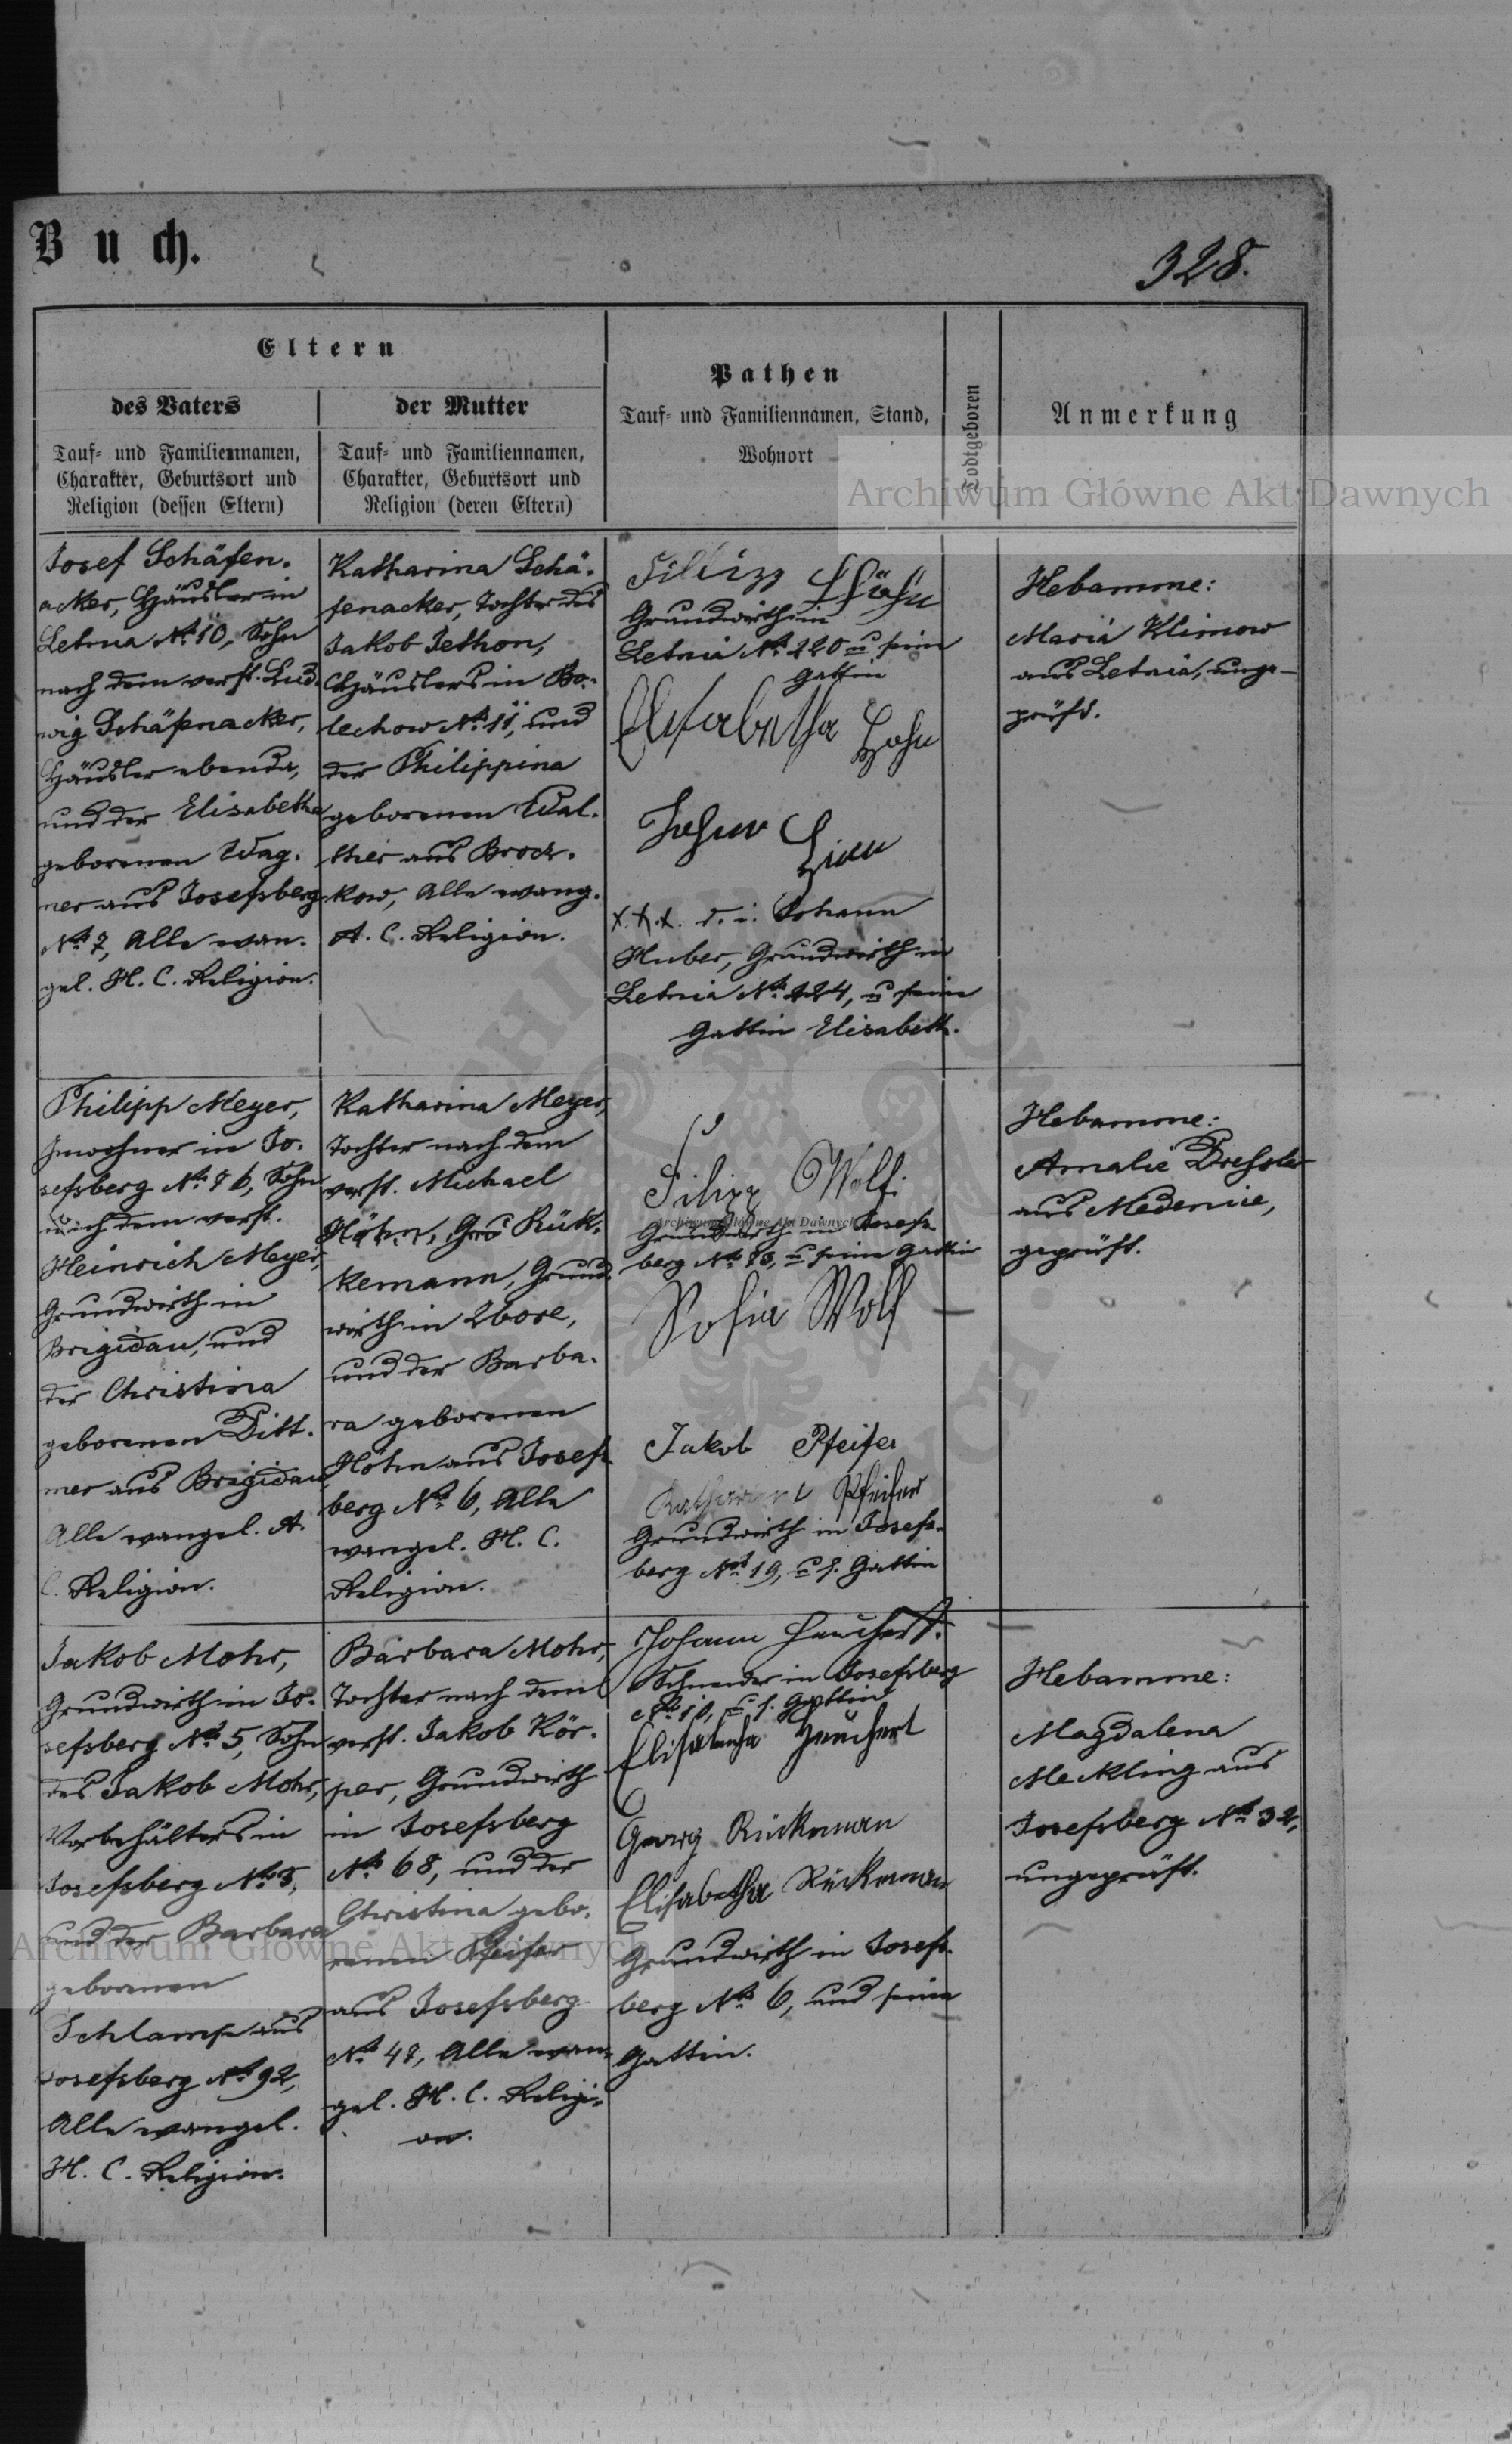 Buch.
328.
Eltern
des Vaters
Tauf- und Familiennamen,
Charakter, Geburtsort und
Religion (dessen Eltern)
der Mutter
Tauf- und Familiennamen,
Charakter, Geburtsort und
Religion (deren Eltern)
Pathen
Tauf- und Familiennamen, Stand,
Wohnort
Todtgeboren
Anmerkung
Josef Schäfen-
acker, Häusler in
Letnia No. 10, Sohn
nach dem verst. Lud-
wig Schäfenacker,
Häusler ebenda,
und der Elisabetha
geborenen Wag-
ner aus Josefsberg
No. 7, Alle evan-
gel. H. C. Religion.
Katharina Schä-
fenacker, Tochter des
Jakob Jethon,
Häuslers in Bo-
lechow No. 11, und
der Philippina
geborenen Wal-
ther aus Brocz-
kow, Alle evang.
A. C. Religion.
Filipp Höhn
Grundwirth in
Letnia No. 220 u seine
Gattin
Elisabetha Höhn
x.x.x. d. i. Johann
Huber, Grundwirth in
Letnia No. 224, u seine
Gattin Elisabeth.
Hebamme:
Maria Klimow
aus Letnia, unge-
prüft.
Philipp Meyer,
Inwohner in Jo-
sefsberg No. 76, Sohn
nach dem verst.
Heinrich Meyer,
Grundwirth in
Brigidau, und
der Christina
geborenen Ditt-
mer aus Brigidau
Alle evangel. A.
C. Religion.
Katharina Meyer,
Tochter nach dem
verst. Michael
Höhn, Rük-
kemann, Grund-
wirth in Ugorz,
und der Barba-
ra geborenen
Höhn aus Josefs-
berg No. 6, Alle
evangel. H. C.
Religion.
Filipp Wolf
Grundwirth in Josefs-
berg No. 73, u seine Gattin
Sofia Wolf
Jakob Pfeifer
Katharina Pfeifer
Grundwirth in Josefs-
berg No. 19, u s. Gattin
Hebamme:
Amalie Dressler
aus Medenice,
geprüft.
Jakob Mohr,
Grundwirth in Jo-
sefsberg No. 5, Sohn
des Jakob Mohr,
Vorbehälters in
Josefsberg No. 5,
und der Barbara
geborenen
Schlamp aus
Josefsberg No. 92,
Alle evangel.
H. C. Religion.
Barbara Mohr,
Tochter nach dem
verst. Jakob Kör-
per, Grundwirth
in Josefsberg
No. 68, und der
Christina gebo-
renen Pfeifer
aus Josefsberg
No. 47, Alle evan-
gel. H. C. Religi-
on.
Johann Heuchert.
Schneider in Josefsberg
No. 10, u s. Gattin
Elisabetha Heuchert
Georg Rückeman
Elisabetha Rückeman
Grundwirth in Josefs-
berg No. 6, und seine
Gattin.
Hebamme:
Magdalena
Meckling aus
Josefsberg No. 32,
ungeprüft.
Archiwum Główne Akt Dawnych
Archiwum Główne Akt Dawnych
Archiwum Główne Akt Dawnych